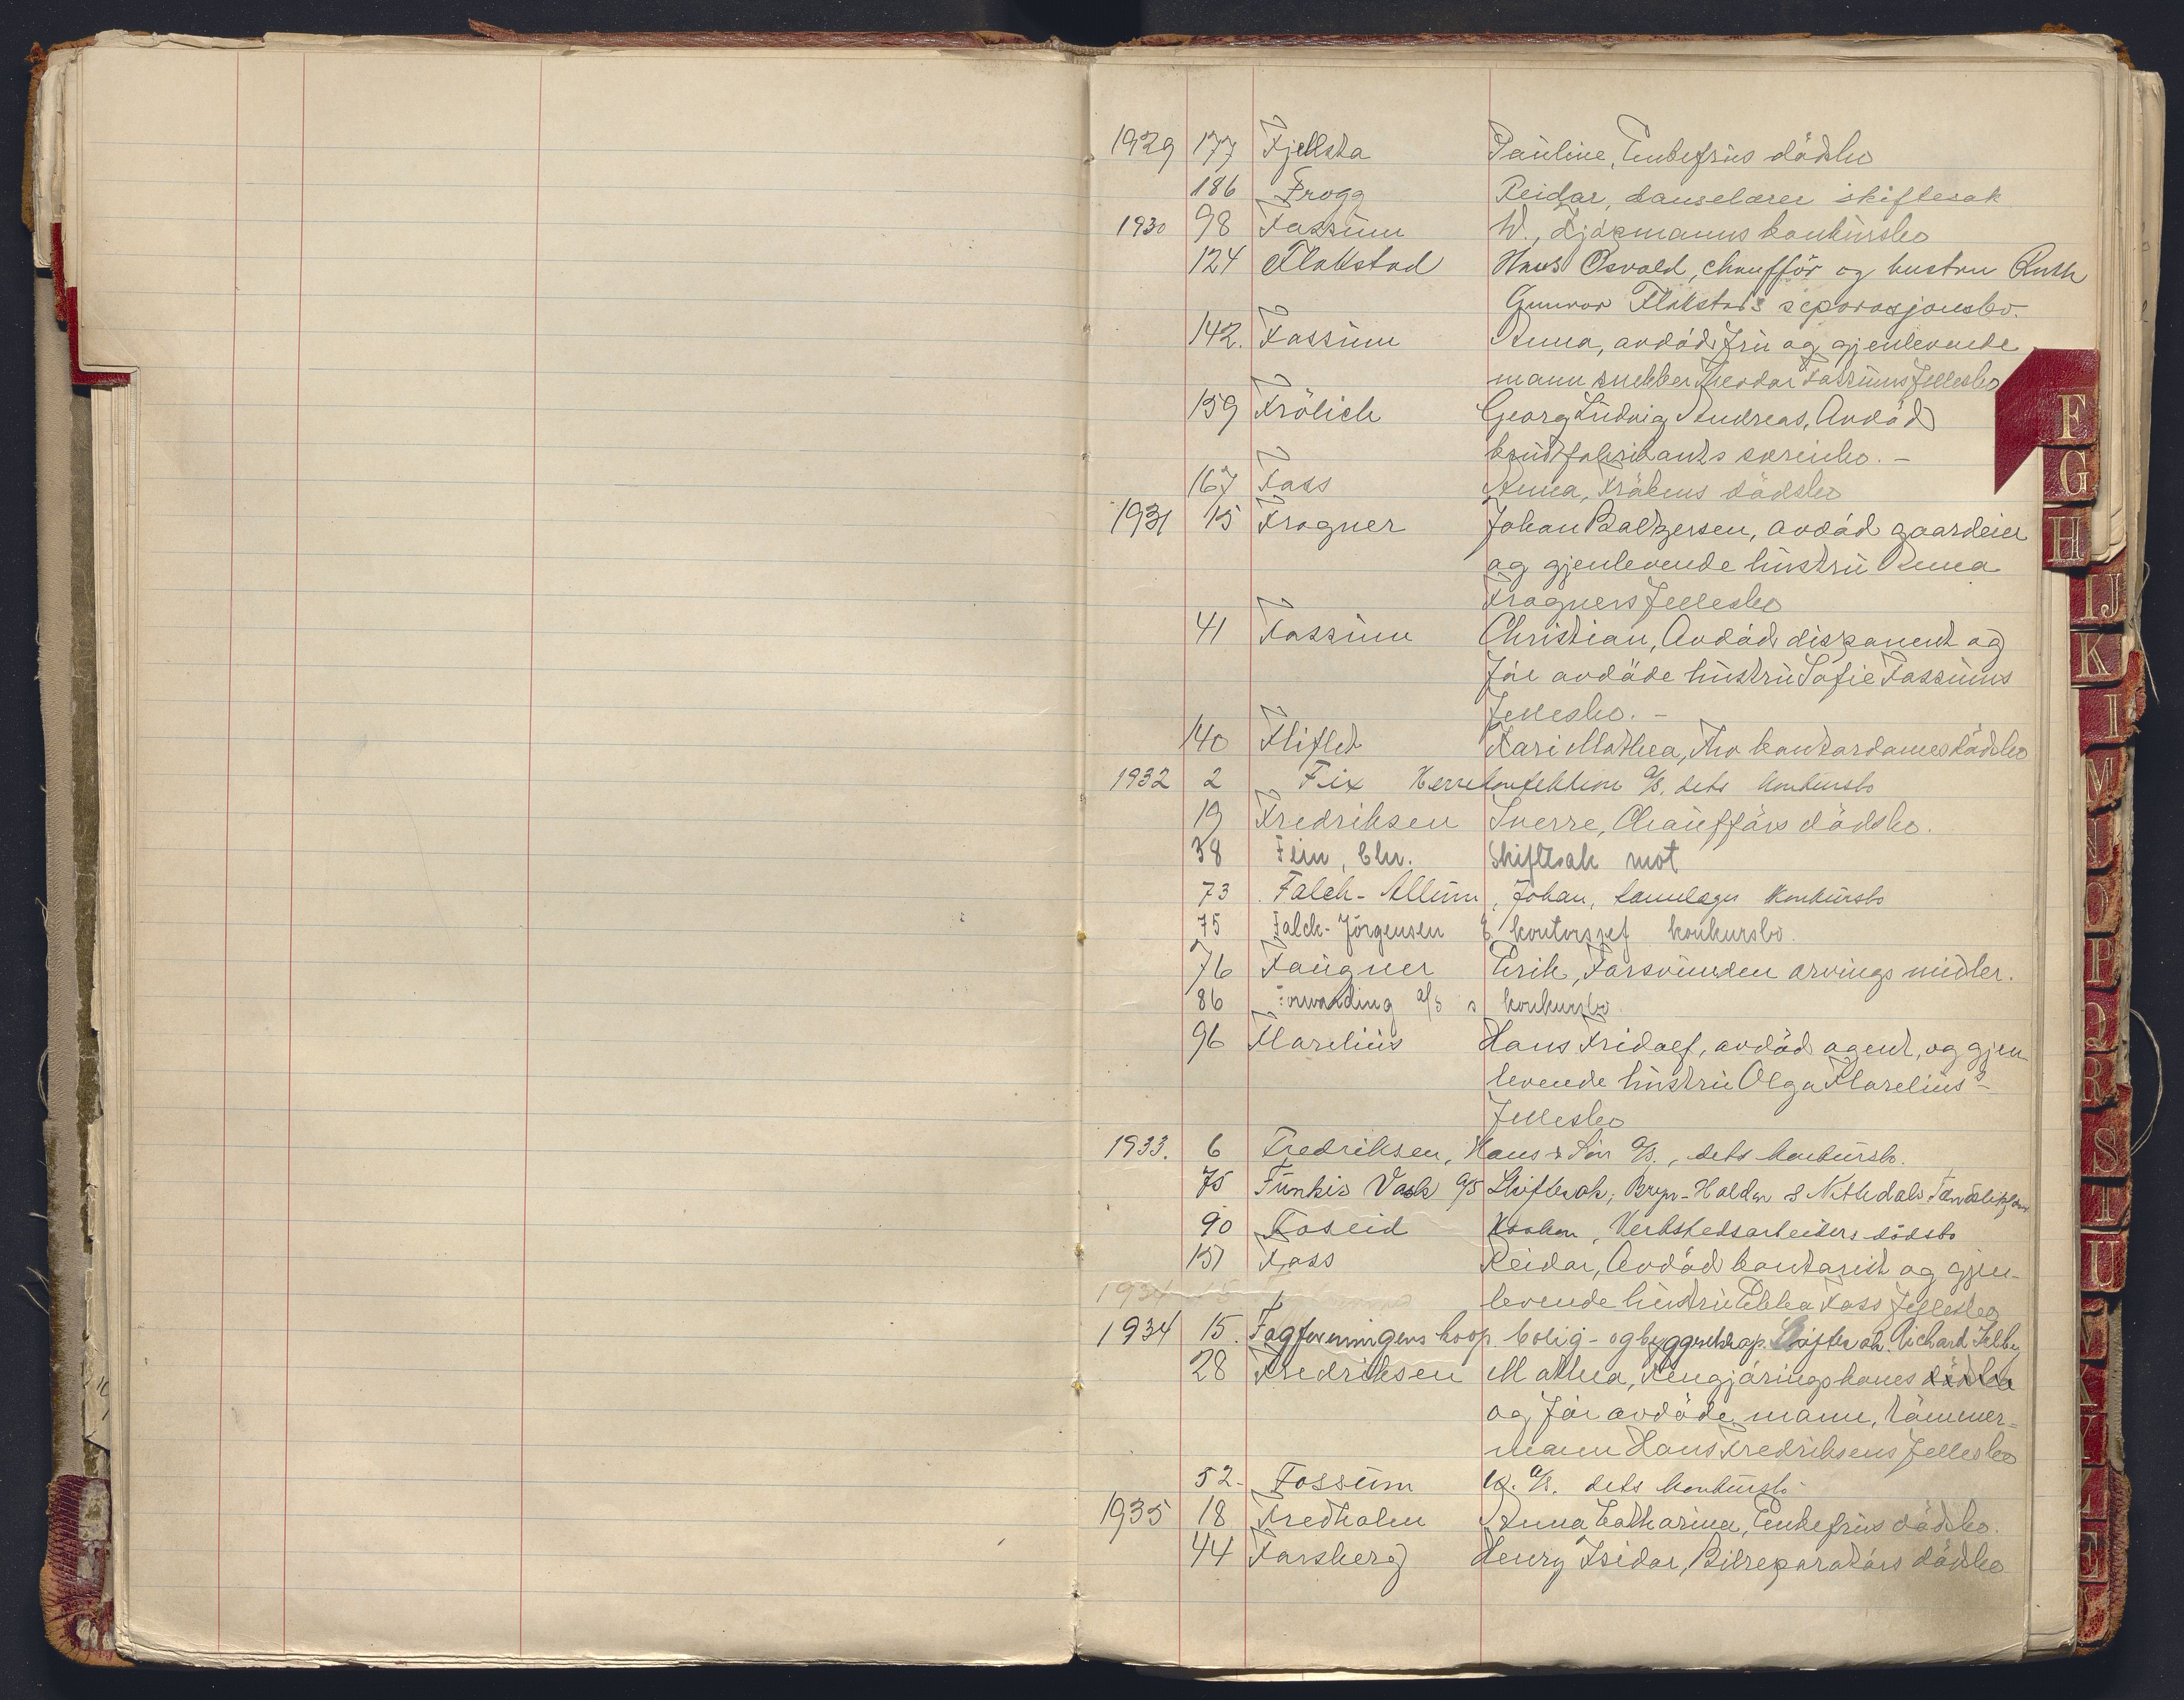 1929 177 Fjellsta Pauline, Enkefrus dödsbo
186 Frogg Reidar, danselærer skiftesak
1930 98 Fossum W., Kjöpmanns konkursbo
124 Flakstad Hans Osvald, chaufför og hustru Ruth
Gunvor Flakstads separasjonsbo.
142. Fossum Anna, avdöd fru og gjenlevende
mann snekker Theodor Fossums fellesbo
159 Frölich Georg Ludvig Andreas, Avdöd
krudtfabrikants særeiebo. –
167 Foss Anna, Frökens dödsbo
1931 15 Frogner Johan Baltzersen, avdöd gaardeier
og gjenlevende hustru Anna
Frogners fellesbo
41 Fossum Christian, Avdöd disponent og
för avdöde hustru Sofie Fossums
fellesbo. –
140 Fliflet Kari Mathea, Frk kontordames dödsbo
1932 2 Fix Herrekonfektion A/S, dets konkursbo
19 Fredriksen Sverre, Chaufförs dödsbo.
38 Fein, Chr. Skiftesak mot
73 Falch-Allum, Johan, konkursbo
75 Falck-Jörgensen E. kontorsjef konkursbo.
76 Faugner Erik, Forsvunden arvings midler.
86 Forwarding A/S s konkursbo
96 Florelius Hans Fridolf, avdöd agent, og gjen-
levende hustru Olga Florelius' -
fellesbo
1933. 6 Fredriksen, Hans & Sön A/S., dets konkursbo.
75 Funkis Vask A/S Skiftesak, Bryn-Halden & Nitedals Tændstikfabr
90 Foseid Haakon, Verkstedsarbeiders dödsbo
151 Foss Reidar, Avdöd kontorist og gjen-
1934 15 levende hustru Ebba Foss' fellesbo
1934 15. Fagforeningens koop. bolig- og byggeselskap. Skiftesak. Richard Selby
28 Fredriksen Mathea, Rengjöringskones dödsbo
og för avdöde mann, tömmer=
mann Hans Fredriksens fellesbo
52 – Fossum K. A/S. dets konkursbo
1935 18 Fredholm Anna Catharina, Enkefrus dödsbo.
44 Forsberg Henry Isidor, Bilreparatörs dödsbo
F
G
H
IJ
K
M
N
O
P
Q
R
S
T
U